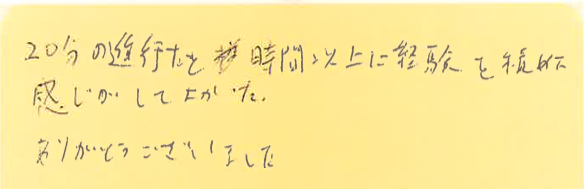 20分の進行だと時間以上に経験を積めた
感じがして上がった.
ありがとうございました